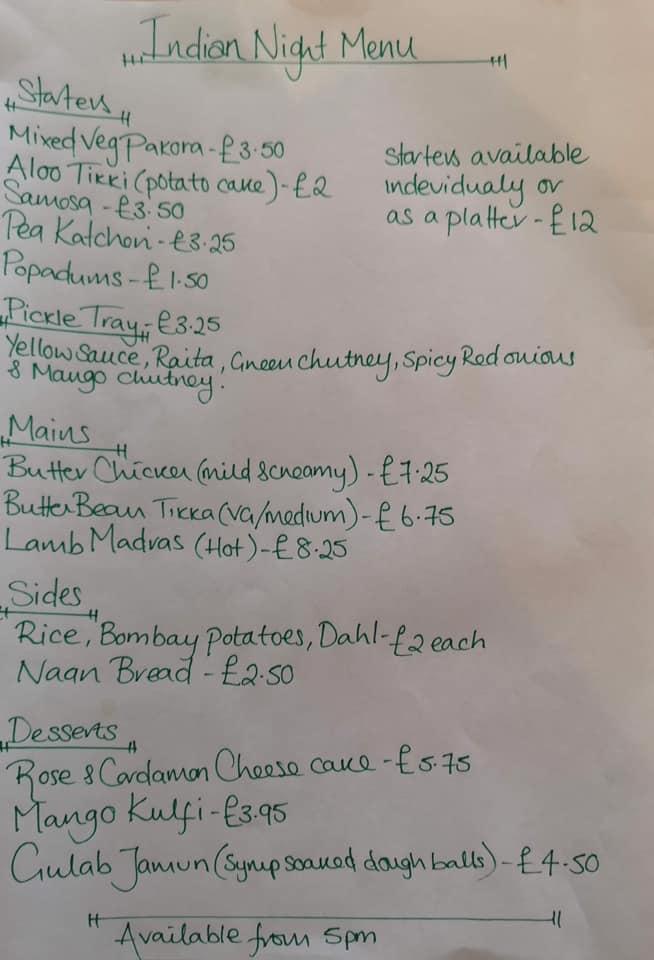 Indian Night Menu
Starters
Mixed Veg Pakora - £3.50
Aloo Tikki (potato cake) - £2
Samosa - £3.50
Pea Katchori - £3.25
Popadums - £1.50
Starters available
indevidualy or
as a platter - £12
Pickle Tray - £3.25
Yellow Sauce, Raita, Green chutney, Spicy Red onions
& Mango chutney.
Mains
Butter Chicken (mild & creamy) - £7.25
Butter Bean Tikka (VG/medium) - £6.75
Lamb Madras (Hot) - £8.25
Sides
Rice, Bombay Potatoes, Dahl - £2 each
Naan Bread - £2.50
Desserts
Rose & Cardamon Cheese cake - £5.75
Mango Kulfi - £3.95
Gulab Jamun (Syrup soaked dough balls) - £4.50
Available from 5pm